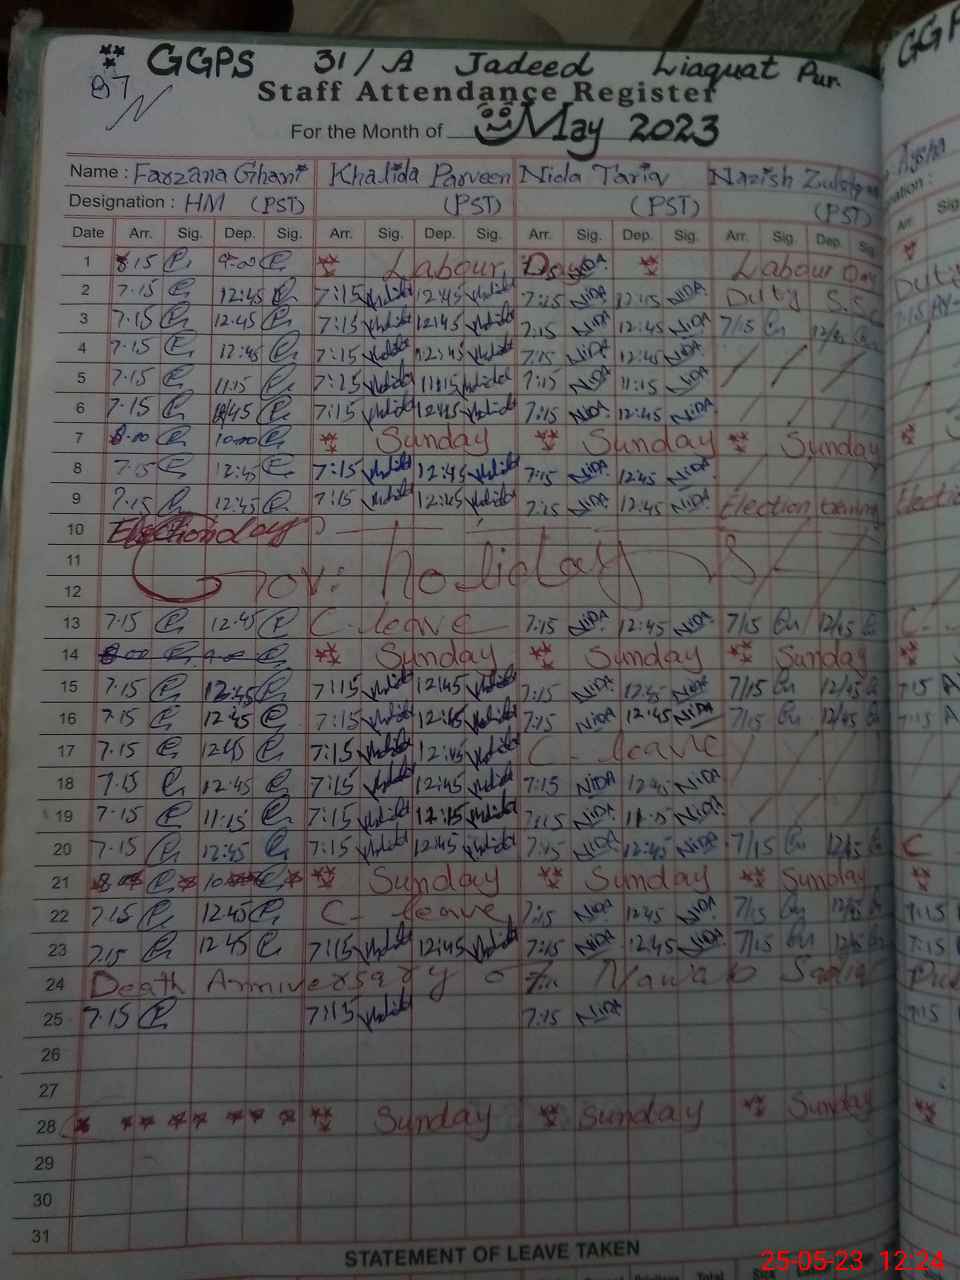 GGPS 31/A Jadeed Liaquat Pur.
Staff Attendance Register
For the Month of May 2023
Name : Farzana Ghani Khalida Parveen Nida Tariq Nazish
Designation : HM (PST) (PST) (PST) (PST)
Date Arr. Sig. Dep. Sig. Arr. Sig. Dep. Sig. Arr. Sig. Dep. Sig. Arr. Sig. Dep. Sig.
1 8.15 9-00 Labour Day NIDA Labour Day
2 7.15 12:45 7:15 Khalida 12:45 Khalida 7:15 NIDA 12:45 NIDA Duty
3 7.15 12.45 7:15 Khalida 12:45 Khalida 7:15 NIDA 12:45 NIDA 7/15 12/45
4 7.15 12:45 7:15 Khalida 12:45 Khalida 7:15 NIDA 12:45 NIDA
5 7.15 11.15 7:15 Khalida 11:15 Khalida 7:15 NIDA 11:15 NIDA
6 7.15 12/45 7:15 Khalida 12:45 Khalida 7:15 NIDA 12:45 NIDA
7 8.00 10.00 Sunday Sunday Sunday
8 7.15 12:45 7:15 Khalida 12:45 Khalida 7:15 NIDA 12:45 NIDA
9 7.15 12:45 7:15 Khalida 12:45 Khalida 7:15 NIDA 12:45 NIDA Election
10
11 Gov: holiday
12
13 7.15 12.45 C. leave 7:15 NIDA 12:45 NIDA 7/15 12/45
14 Sunday Sunday Sunday
15 7.15 12:45 7:15 Khalida 12:45 Khalida 7:15 NIDA 12:45 NIDA 7/15 12/45
16 7.15 12:45 7:15 Khalida 12:45 Khalida 7:15 NIDA 12:45 NIDA 7/15 12/45
17 7.15 12:45 7:15 Khalida 12:45 Khalida C. leave
18 7.15 12.45 7:15 Khalida 12:45 Khalida 7:15 NIDA 12:45 NIDA
19 7.15 11:15 7:15 Khalida 12:15 Khalida 7:15 NIDA 11:15 NIDA
20 7.15 12:45 7:15 Khalida 12:45 Khalida 7:15 NIDA 12:45 NIDA 7/15 12/45 C
21 Sunday Sunday Sunday
22 7.15 12.45 C- leave 7:15 NIDA 12:45 NIDA 7/15 12/45 7:15
23 7.15 12.45 7:15 Khalida 12:45 Khalida 7:15 NIDA 12:45 NIDA 7/15 12/45 7:15
24 Death Anniversary of Nawab Sadiq
25 7.15 7:15 Khalida 7:15 NIDA 7:15
26
27
28 Sunday Sunday Sunday
29
30
31
STATEMENT OF LEAVE TAKEN
25-05-23 12:24